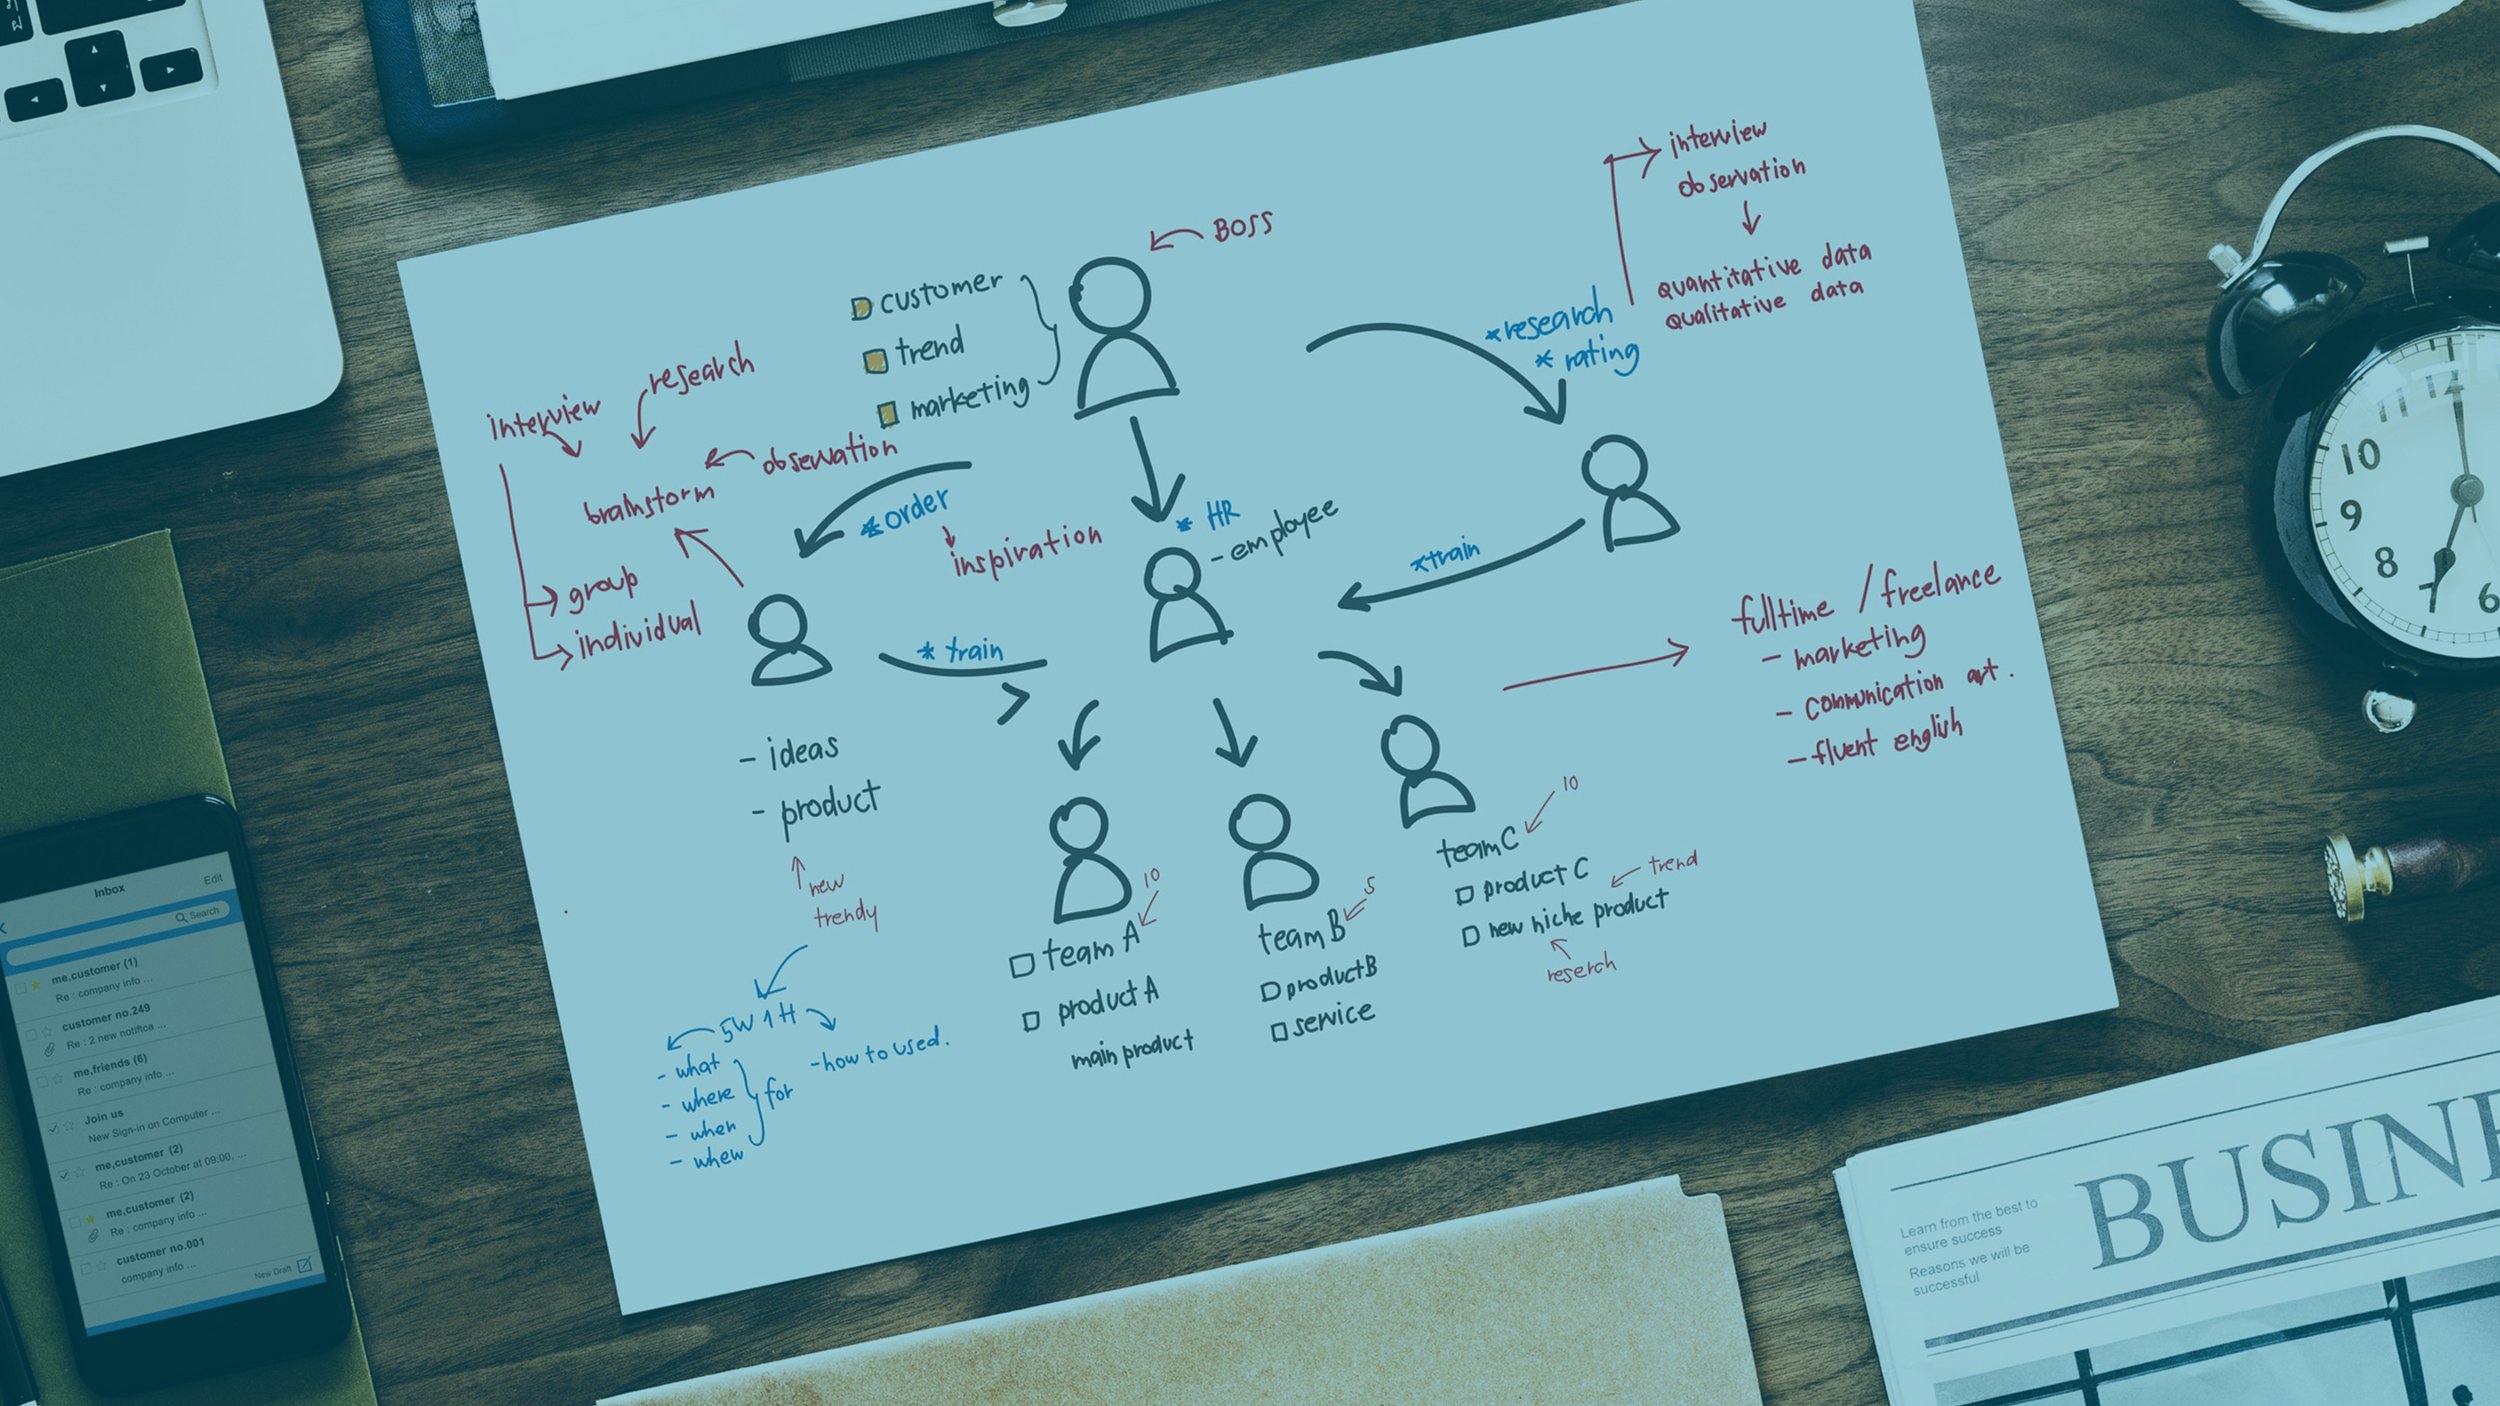 BOSS
customer
trend
marketing
interview
research
observation
brainstorm
group
individual
*order
inspiration
* HR
- employee
*research
* rating
interview
observation
quantitative data
qualitative data
*train
* train
- ideas
- product
new
trendy
5W 1H
- what
- where
- when
- whew
for
-how to used.
fulltime / freelance
- marketing
- communication art.
- fluent english
10
team A
product A
main product
5
team B
product B
service
10
team C
product C
trend
new niche product
reserch
10
9
8
7
6
11
12
Inbox
Edit
Search
me,customer (1)
Re : company info ...
customer no.249
Re : 2 new notiftca ...
me,friends (6)
Re : company info ...
Join us
New Sign-in on Computer ...
me,customer (2)
Re : On 23 October at 09:00, ...
me,customer (2)
Re : company info ...
customer no.001
company info ...
New Draft
Learn from the best to
ensure success
Reasons we will be
successful
BUSINE